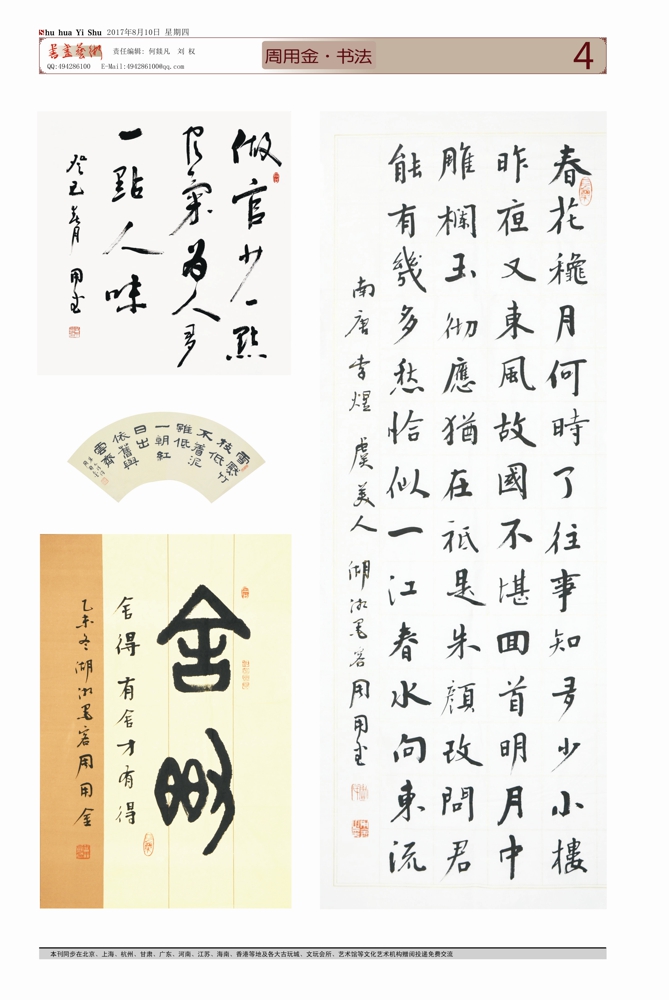 Shu hua Yi Shu 2017年8月10日 星期四
書畫藝術
责任编辑: 何燚凡 刘 权
QQ:494286100 E-Mail:494286100@qq.com
周用金·书法
4
做官少一點
官氣為人多
一點人味
癸巳春月 用金
雪壓竹
枝低
雖低
不着泥
一朝紅
日出
依舊與
雲齊
舍得
舍得 有舍才有得
乙未冬湖湘墨客周用金
春花穐月何時了往事知多少小樓
昨夜又東風故國不堪回首明月中
雕欄玉砌應猶在祗是朱顔改問君
能有幾多愁恰似一江春水向東流
南唐 李煜 虞美人 湖湘墨客周用金
本刊同步在北京、上海、杭州、甘肃、广东、河南、江苏、海南、香港等地及各大古玩城、文玩会所、艺术馆等文化艺术机构赠阅投递免费交流